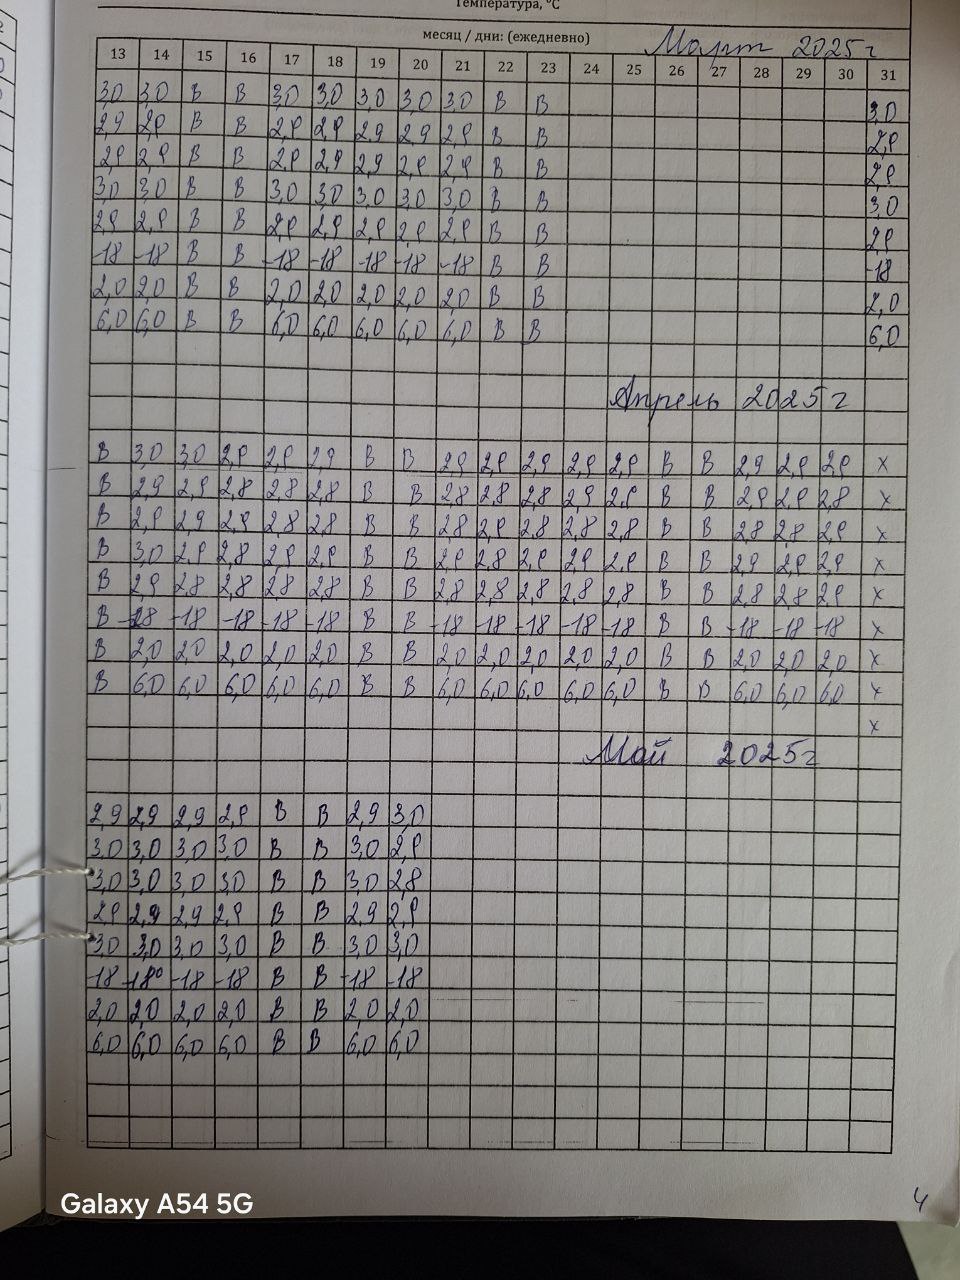 Температура, °С
месяц / дни: (ежедневно) Март 2025г
13 14 15 16 17 18 19 20 21 22 23 24 25 26 27 28 29 30 31
3,0 3,0 В В 3,0 3,0 3,0 3,0 3,0 В В 3,0
2,9 2,9 В В 2,9 2,9 2,9 2,9 2,9 В В 2,9
2,9 2,9 В В 2,9 2,9 2,9 2,9 2,9 В В 2,9
3,0 3,0 В В 3,0 3,0 3,0 3,0 3,0 В В 3,0
2,9 2,9 В В 2,9 2,9 2,9 2,9 2,9 В В 2,9
-18 -18 В В -18 -18 -18 -18 -18 В В -18
2,0 2,0 В В 2,0 2,0 2,0 2,0 2,0 В В 2,0
6,0 6,0 В В 6,0 6,0 6,0 6,0 6,0 В В 6,0
Апрель 2025г
В 3,0 3,0 2,9 2,9 2,9 В В 2,9 2,9 2,9 2,9 2,9 В В 2,9 2,9 2,9 х
В 2,9 2,9 2,8 2,8 2,8 В В 2,8 2,8 2,8 2,9 2,9 В В 2,9 2,9 2,8 х
В 2,9 2,9 2,9 2,8 2,8 В В 2,8 2,9 2,8 2,8 2,8 В В 2,8 2,8 2,9 х
В 3,0 2,9 2,8 2,9 2,9 В В 2,9 2,8 2,9 2,9 2,9 В В 2,9 2,9 2,9 х
В 2,9 2,8 2,8 2,8 2,8 В В 2,8 2,8 2,8 2,8 2,8 В В 2,8 2,8 2,9 х
В -18 -18 -18 -18 -18 В В -18 -18 -18 -18 -18 В В -18 -18 -18 х
В 2,0 2,0 2,0 2,0 2,0 В В 2,0 2,0 2,0 2,0 2,0 В В 2,0 2,0 2,0 х
В 6,0 6,0 6,0 6,0 6,0 В В 6,0 6,0 6,0 6,0 6,0 В В 6,0 6,0 6,0 х
х
Май 2025г
2,9 2,9 2,9 2,9 В В 2,9 3,0
3,0 3,0 3,0 3,0 В В 3,0 2,9
3,0 3,0 3,0 3,0 В В 3,0 2,8
2,9 2,9 2,9 2,9 В В 2,9 2,9
3,0 3,0 3,0 3,0 В В 3,0 3,0
-18 -18° -18 -18 В В -18 -18
2,0 2,0 2,0 2,0 В В 2,0 2,0
6,0 6,0 6,0 6,0 В В 6,0 6,0
Galaxy A54 5G
4